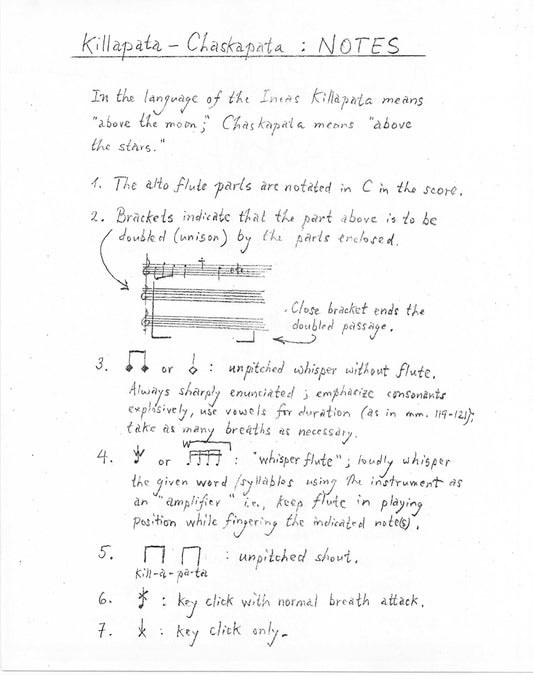 Killapata – Chaskapata : NOTES
In the language of the Incas Killapata means
"above the moon;" Chaskapata means "above
the stars."
1. The alto flute parts are notated in C in the score.
2. Brackets indicate that the part above is to be
doubled (unison) by the parts enclosed.
etc.
Close bracket ends the
doubled passage.
3. or : unpitched whisper without flute.
Always sharply enunciated ; emphasize consonants
explosively, use vowels for duration (as in mm. 119-121);
take as many breaths as necessary.
W
4. or : "whisper flute" ; loudly whisper
the given word/syllables using the instrument as
an "amplifier" i.e., keep flute in playing
position while fingering the indicated note(s).
5. : unpitched shout.
Kill-a-pa-ta
6. : key click with normal breath attack.
7. : key click only.